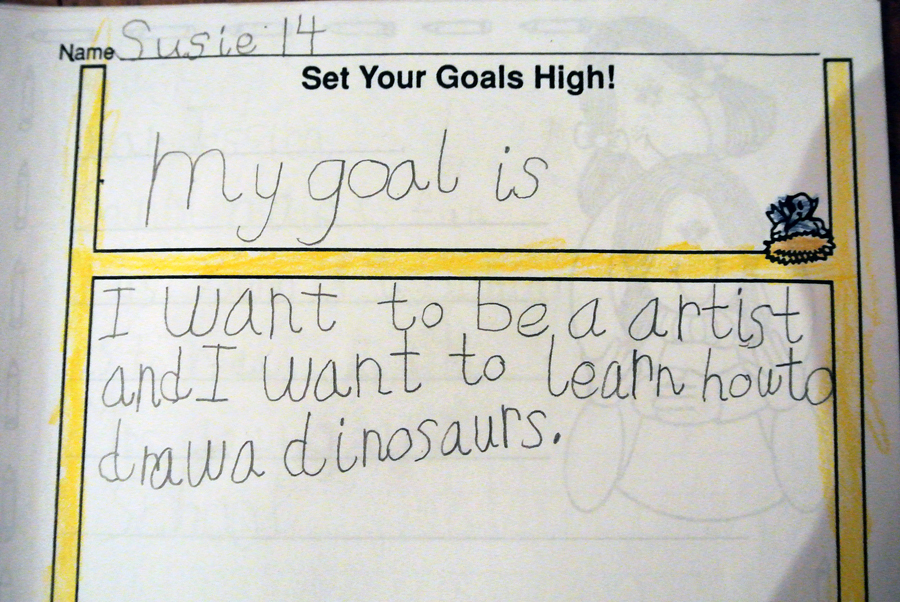 Name Susie 14
Set Your Goals High!
My goal is
I want to be a artist
and I want to learn how to
draw a dinosaurs.